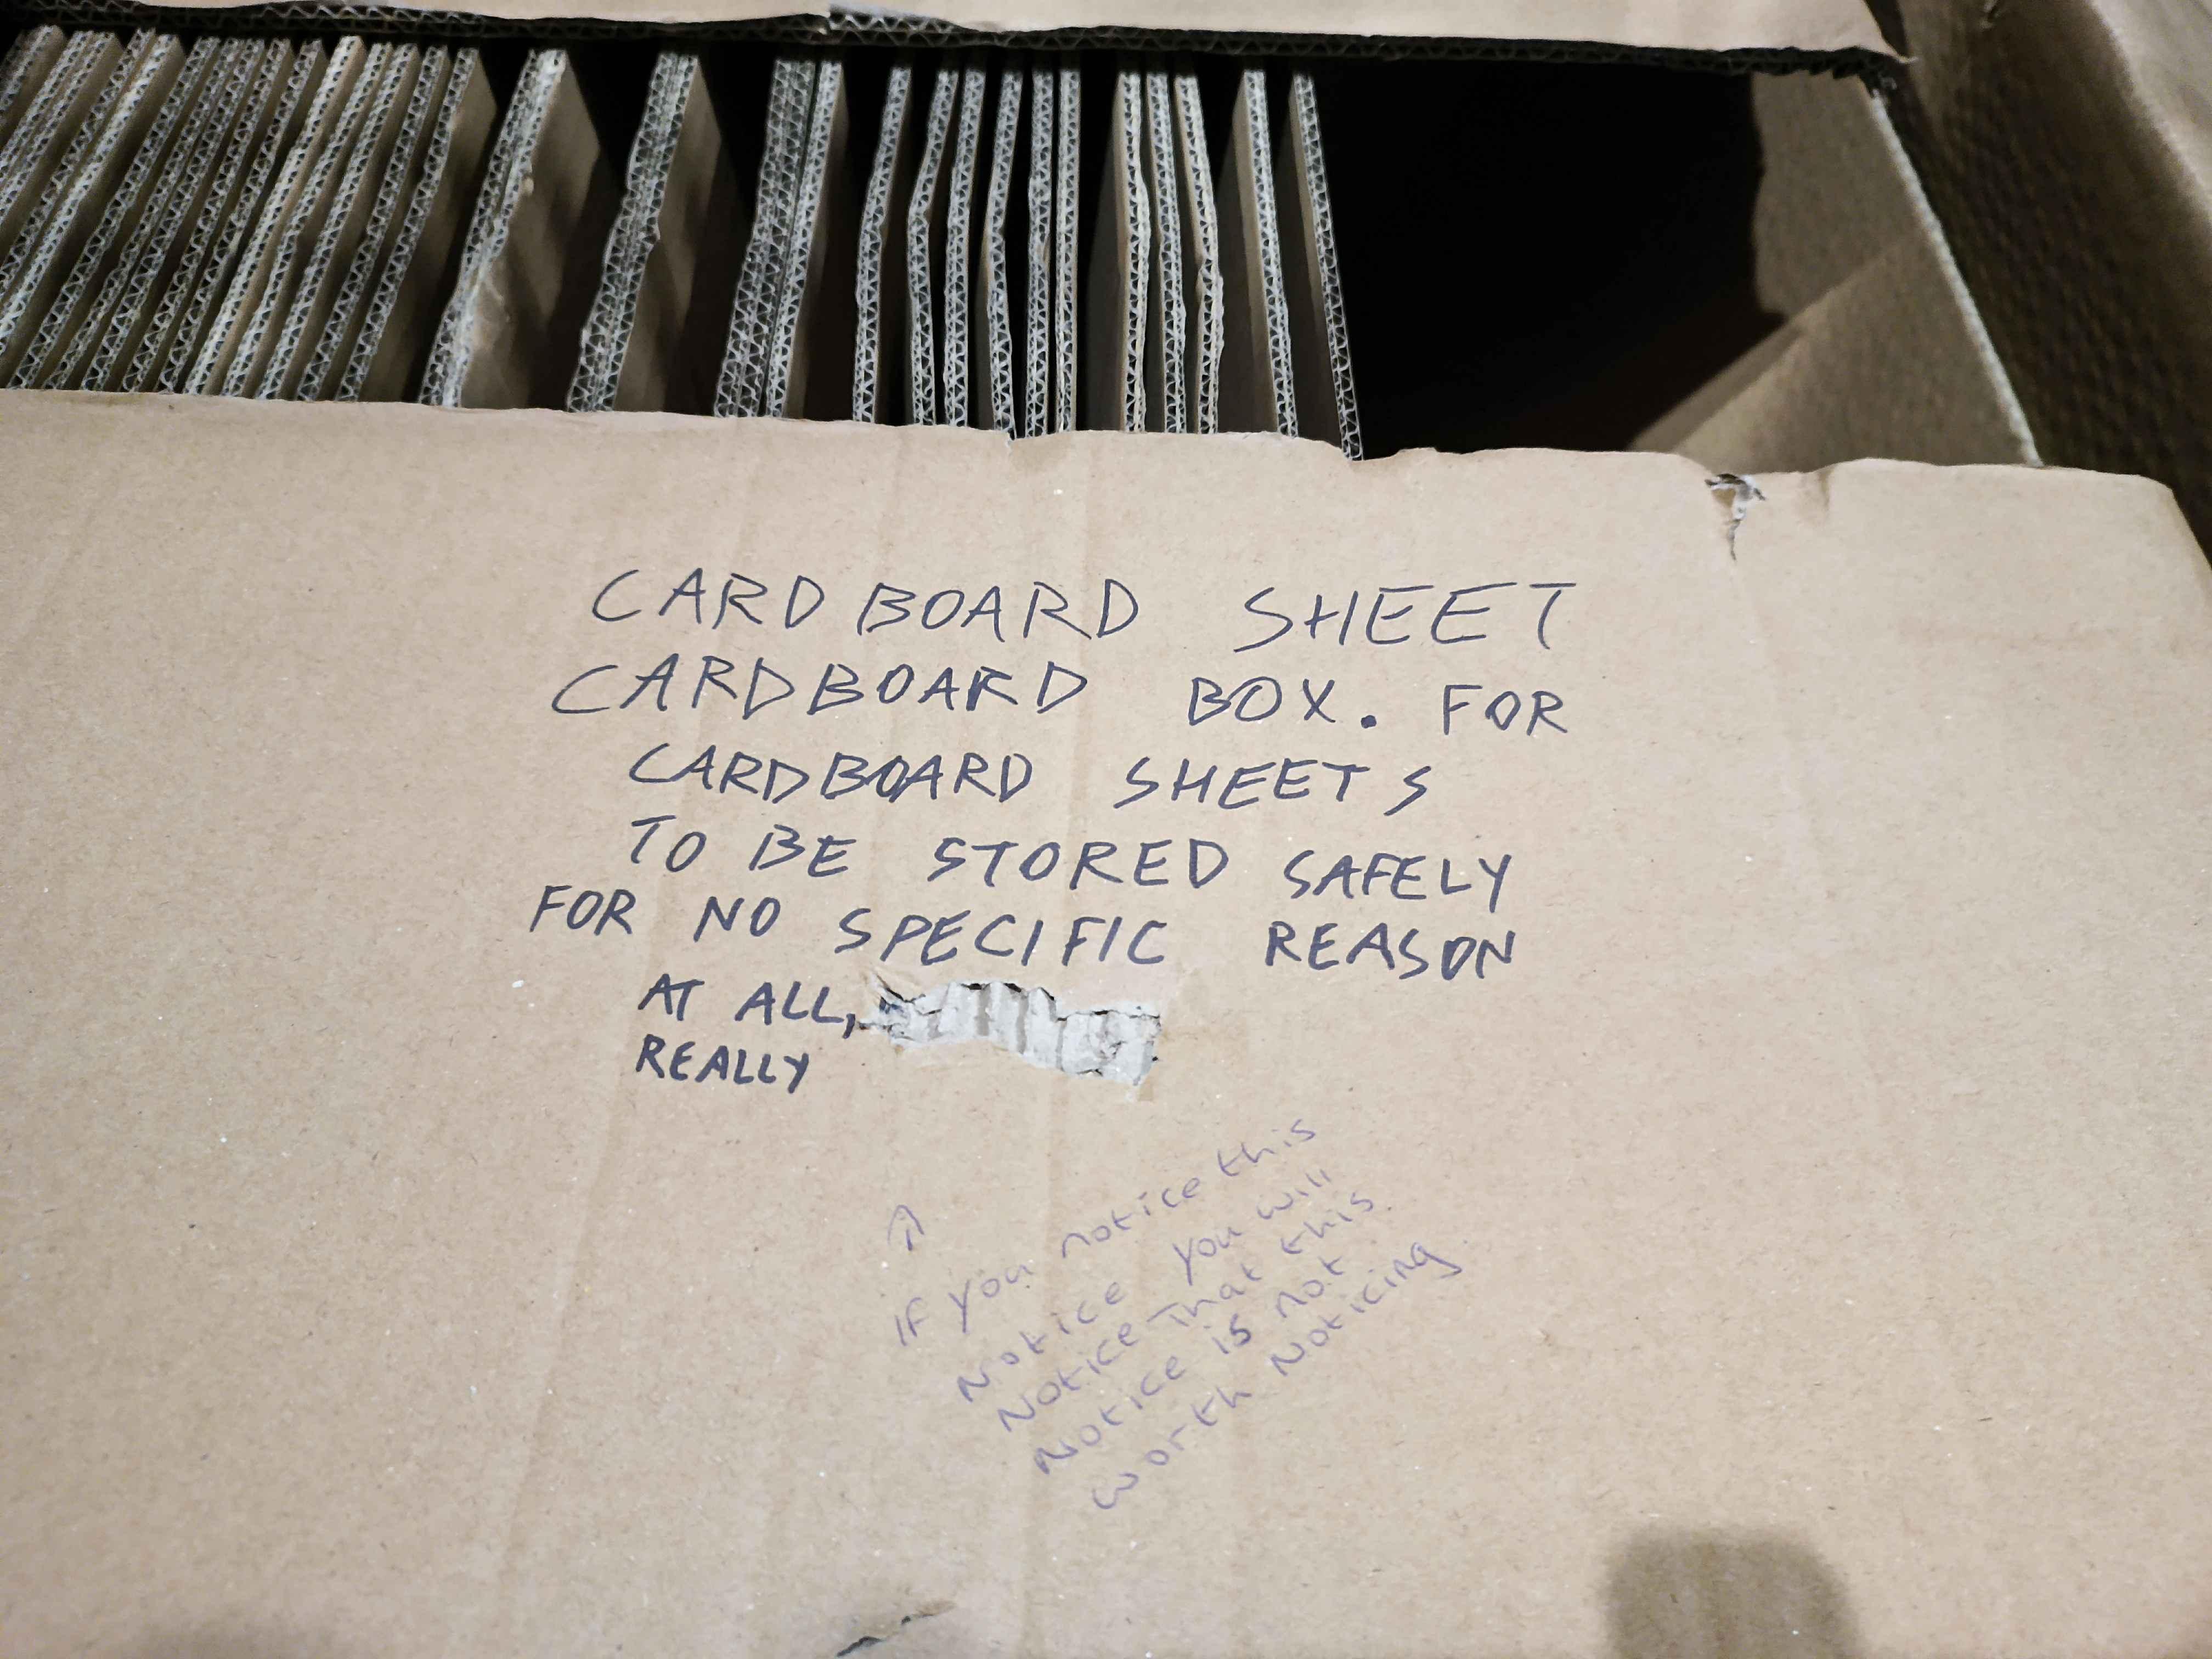 CARDBOARD SHEET
CARDBOARD BOX. FOR
CARDBOARD SHEETS
TO BE STORED SAFELY
FOR NO SPECIFIC REASON
AT ALL,
REALLY
If you notice this
Notice you will
Notice That this
Notice is not
worth Noticing